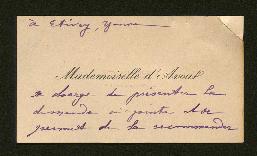 à Etivey, Yonne
Mademoiselle d'Avout
se charge de présenter la
demande ci jointe et se
permet de la recommander